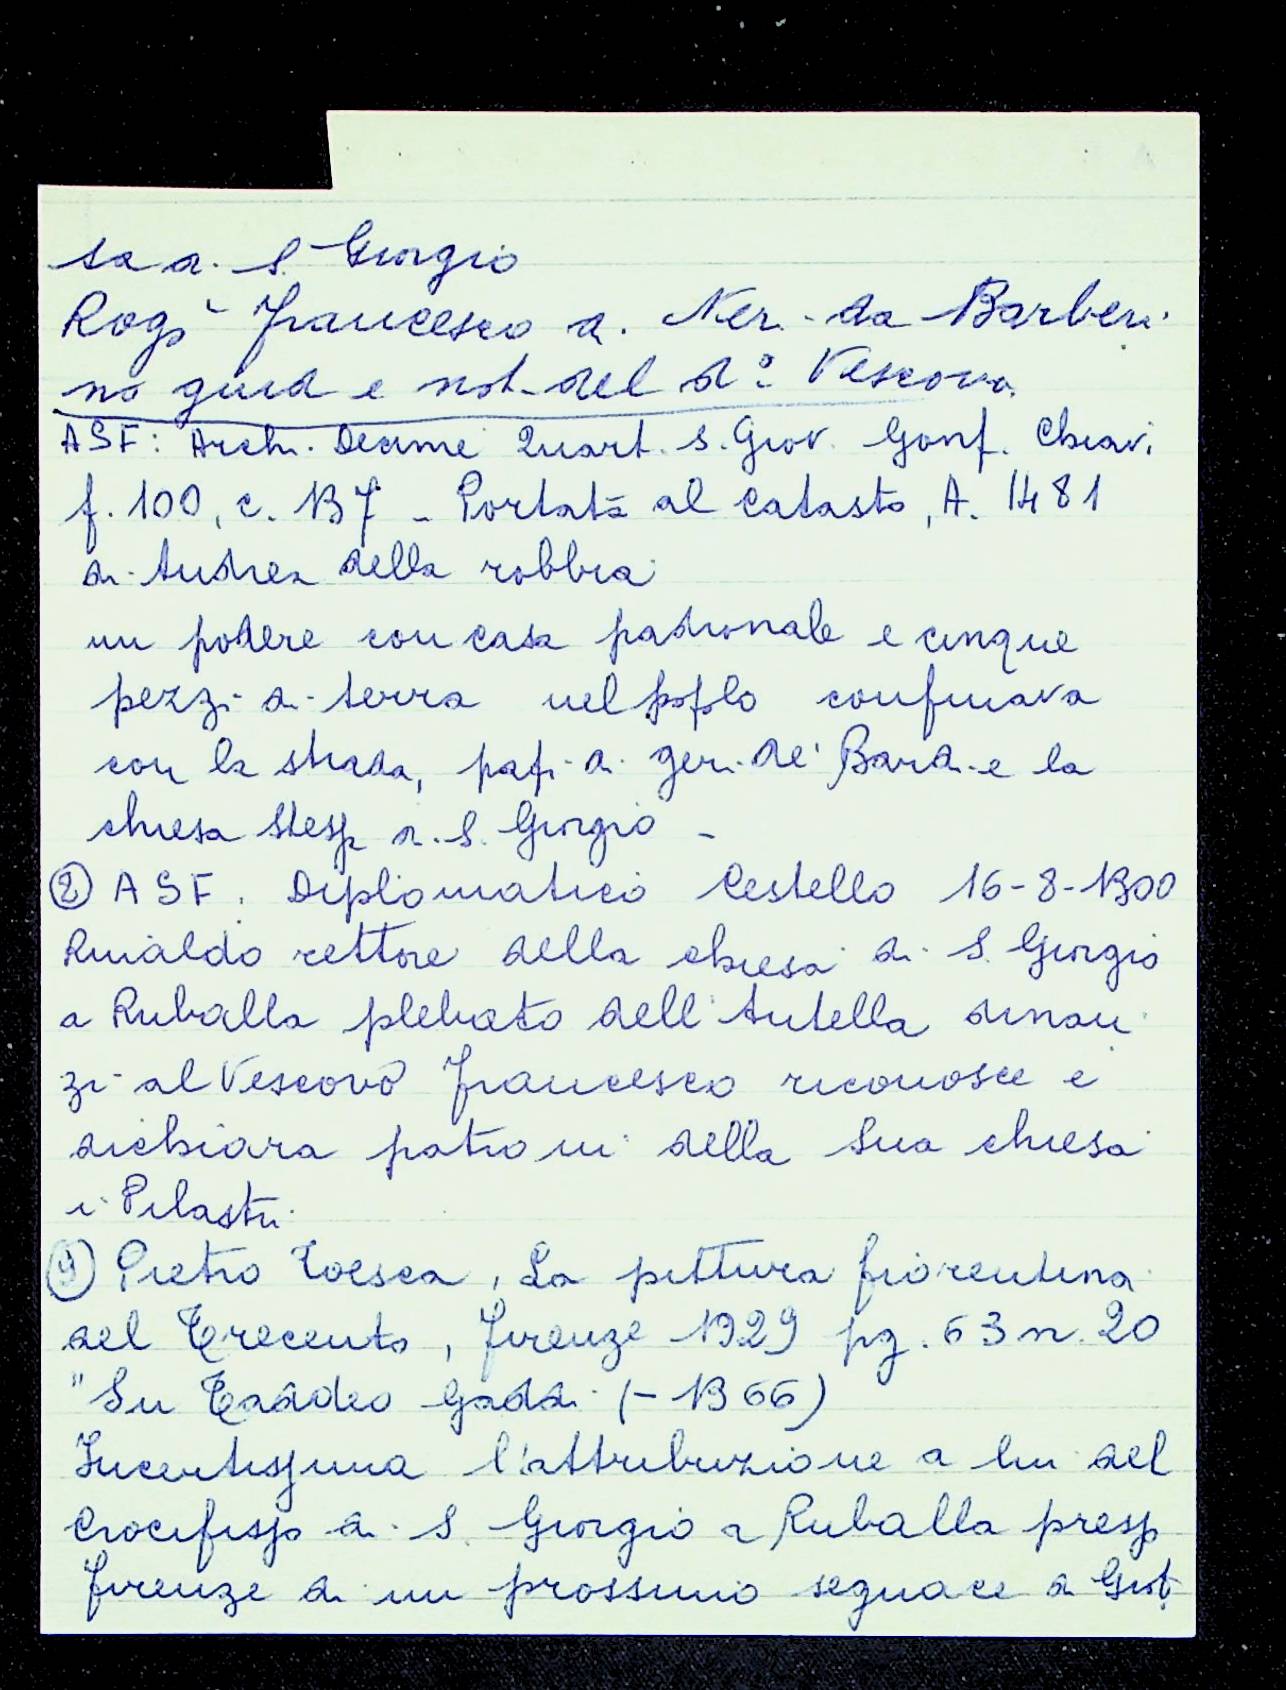 sa di S. Giorgio
Rogò Francesco di Ner. da Barberi
no giud e not. del dº Vescovo.
ASF: Arch. Decime Quart. S. Giov. Gonf. Chiavi
f. 100, c. 137 - Portata al Catasto, A. 1481
di Andrea della robbia
un podere con casa padronale e cinque
pezzi di terra nel popolo confinava
con la strada, papi di geri de' Bardi e la
chiesa stessa di S. Giorgio -
② ASF. Diplomatico Cestello 16-8-1300
Rinaldo rettore della chiesa di S. Giorgio
a Ruballa plebato dell'Antella dinan
zi al Vescovo Francesco riconosce e
dichiara patroni della sua chiesa
i Pilastri.
⑨ Pietro Toesca, La pittura fiorentina
del Trecento, Firenze 1929 pg. 63 n. 20
"Su Taddeo Gaddi (-1366)
Incertissima l'attribuzione a lui del
Crocifisso di S. Giorgio a Ruballa presso
Firenze di un prossimo seguace di Giot